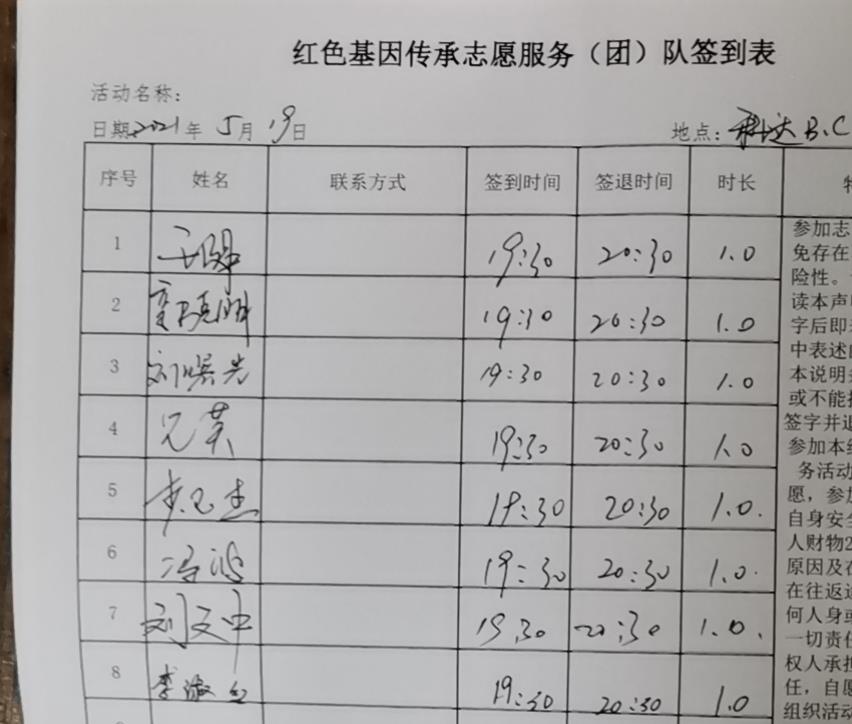 红色基因传承志愿服务（团）队签到表
活动名称：
日期2021年 5月 19日 地点： B.C
序号 姓名 联系方式 签到时间 签退时间 时长
1 19:30 20:30 1.0
2 19:30 20:30 1.0
3 刘曙光 19:30 20:30 1.0
4 19:30 20:30 1.0
5 19:30 20:30 1.0.
6 冯波 19:30 20:30 1.0.
7 刘文中 19.30 20:30 1.0.
8 李淑 19:30 20:30 1.0
参加志
免存在
险性。
读本声
字后即
中表述
本说明
或不能
签字并退
参加本
务活动
愿，参加
自身安全
人财物2
原因及在
在往返途
何人身或
一切责任
权人承担
任，自愿
组织活动